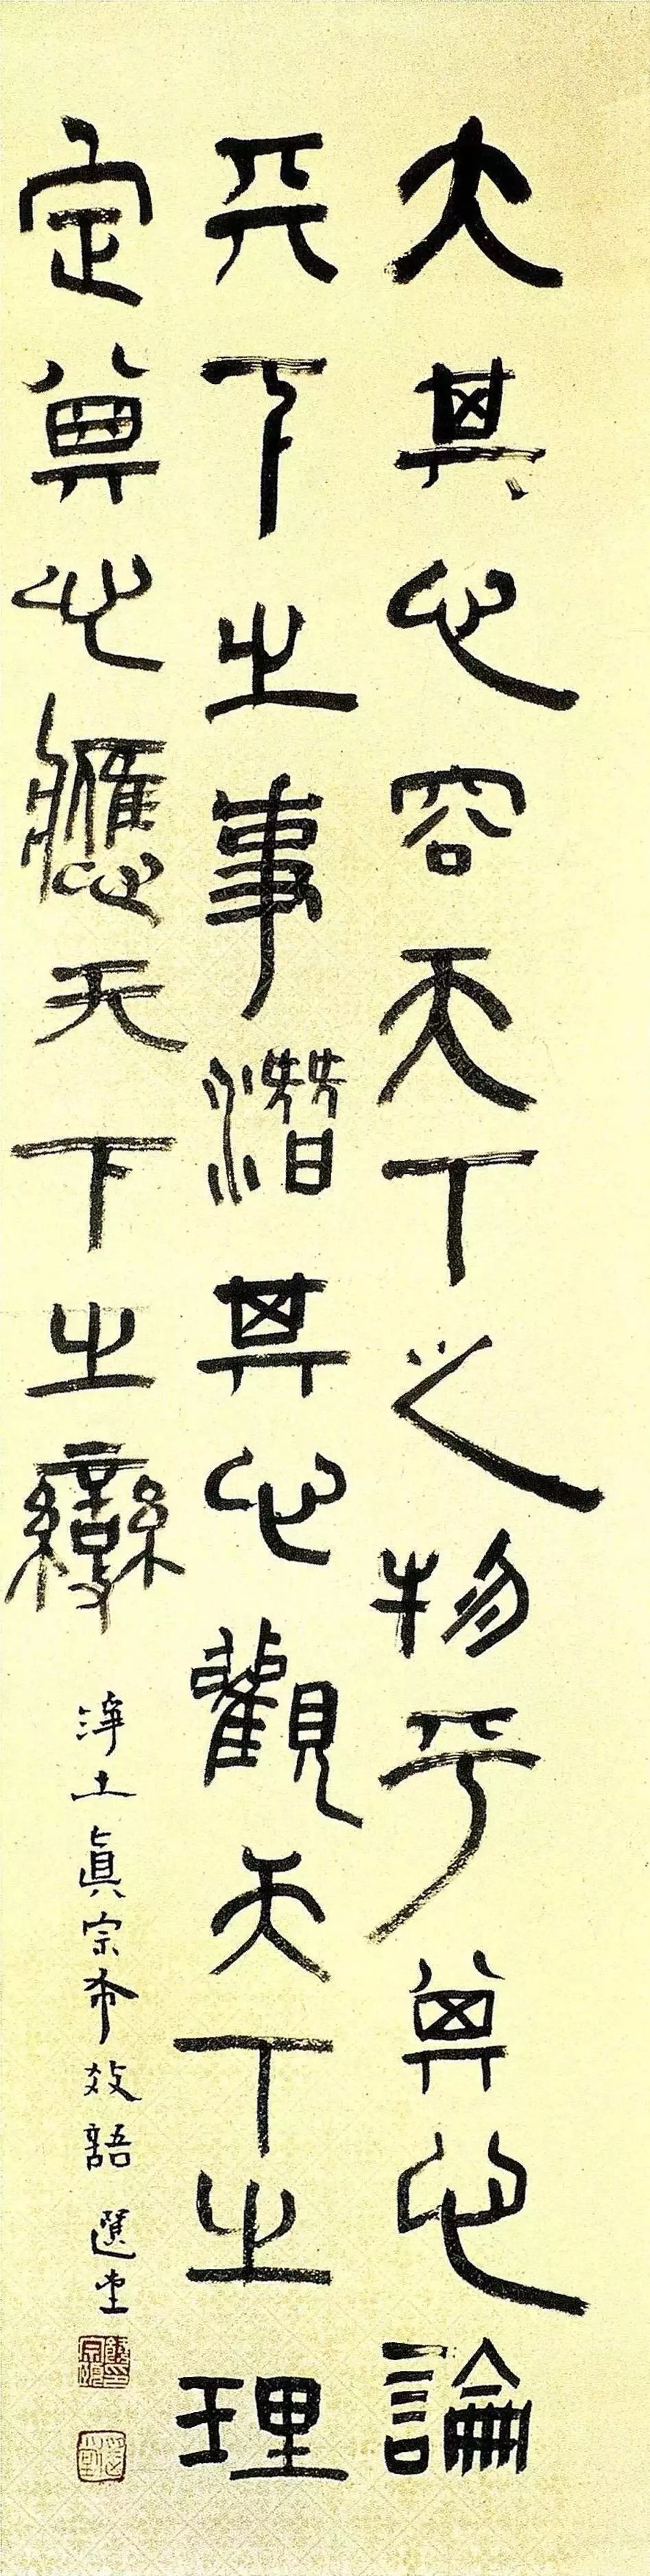 大其心容天下之物平其心論
天下之事潛其心觀天下之理
定其心應天下之變
淨土眞宗布教語 選堂
選堂